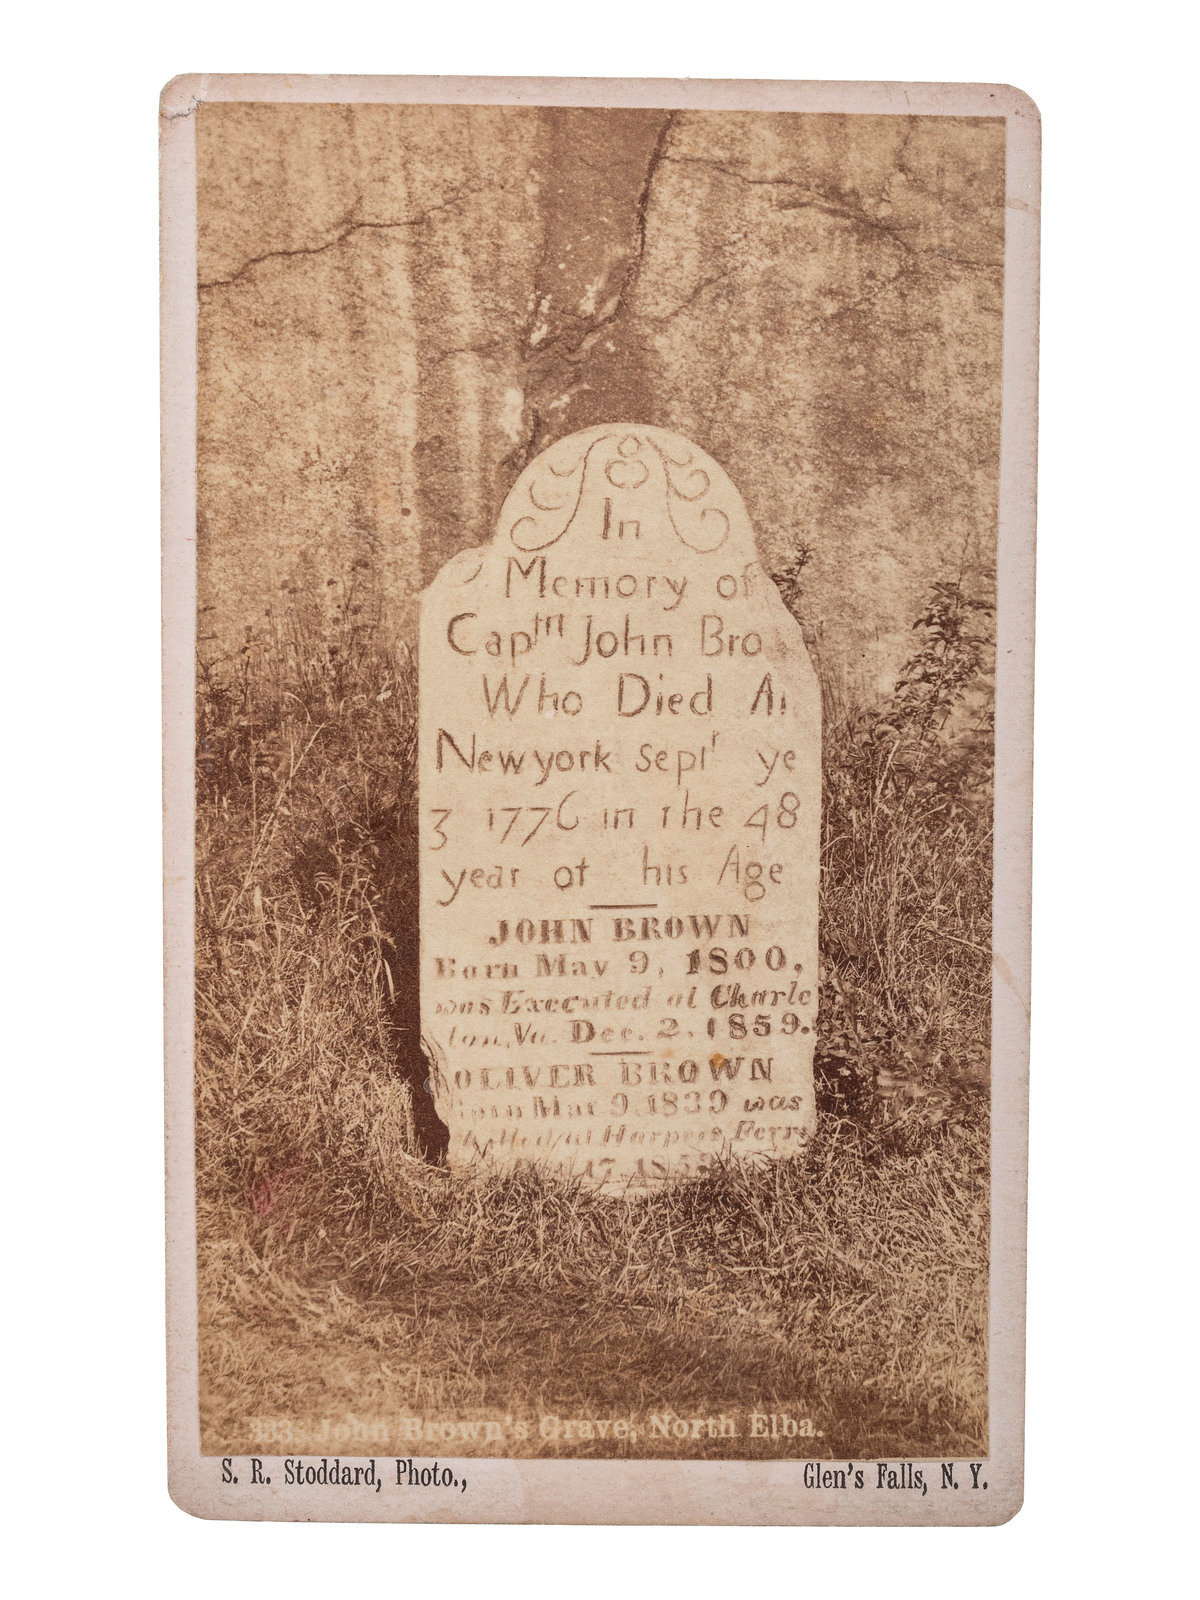 In
Memory of
Captn John Bro
Who Died At
Newyork Septr ye
3 1776 in the 48
year of his Age
JOHN BROWN
Born May 9, 1800,
was Executed at Charle
ton, Va. Dec. 2, 1859.
OLIVER BROWN
Born Mar. 9, 1839 was
Killed at Harpers Ferry
17, 1859
333. John Brown's Grave, North Elba.
S. R. Stoddard, Photo., Glen's Falls, N. Y.